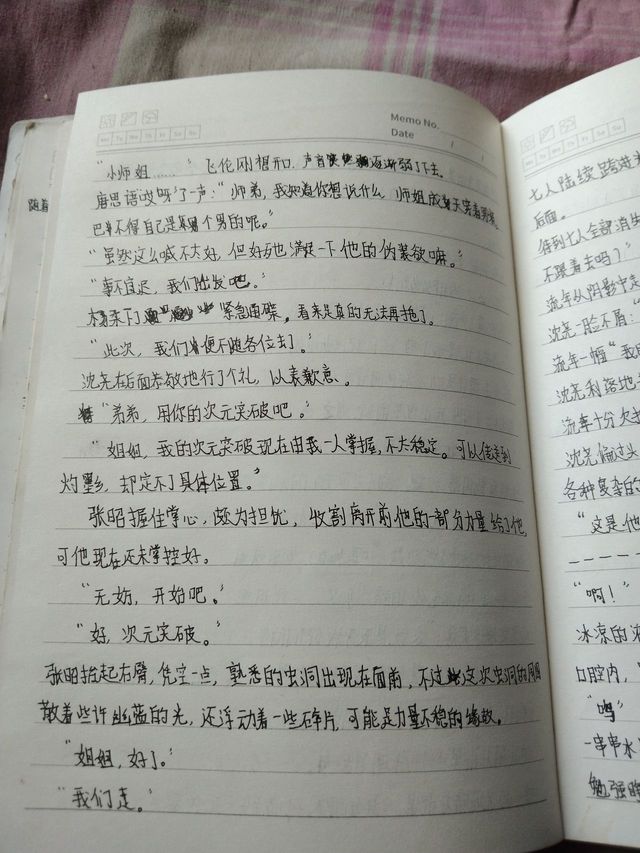 Memo No.
Date / /
Mo Tu We Th Fr Sa Su
“小师姐……”飞伦刚想开口,声音逐渐弱了下去。
唐思语哎呀了一声:“师弟,我知道你想说什么,师姐成天穿着男装,
巴不得自己是个男的呢。”
“虽然这么喊不太好,但好歹也满足一下他的伪装欲嘛。”
“事不宜迟,我们出发吧。”
紧急通牒。看来是真的无法再拖了。
“此次,我们便不随各位去了。”
沈尧在后面恭敬地行了个礼,以表歉意。
“弟弟,用你的次元突破吧。”
“姐姐,我的次元突破现在由我一人掌握,不太稳定。可以传送到
灼影,却定不了具体位置。”
张昭握住掌心,颇为担忧,收割离开前他的一部分力量给了他,
可他现在还未掌控好。
“无妨,开始吧。”
“好,次元突破。”
张昭抬起右臂,凭空一点,熟悉的虫洞出现在面前,不过这次虫洞的周围
散着些许幽蓝的光,还浮动着一些碎片,可能是力量不稳的缘故。
“姐姐,好了。”
“我们走。”
随着
七人陆续跨进
后面。
待到七人全部消失
不跟着去吗?”
流年从阴影中走
沈尧一脸不屑:
流年一愣“我的
沈尧利落地
流年十分欠
沈尧偏过头
各种复杂的
“这是他
“啊!”
冰凉的液
口腔内,
“呜
一串串水
勉强睁